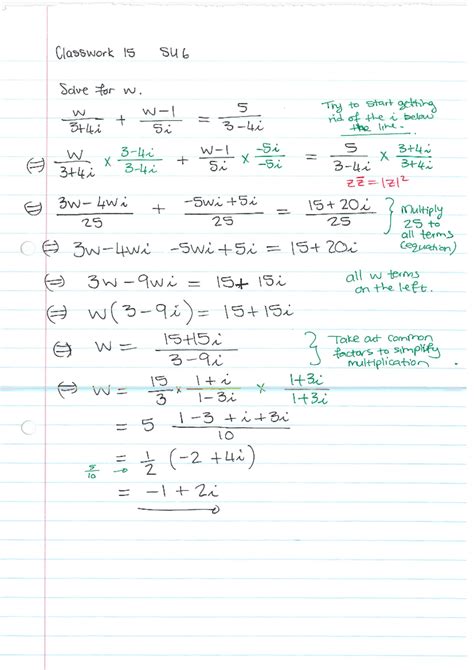 Classwork 15 SU6
Solve for w.
w/(3+4i) + (w-1)/5i = 5/(3-4i)
Try to start getting
rid of the i below
the line.
⇔ w/(3+4i) × (3-4i)/(3-4i) + (w-1)/5i × -5i/-5i = 5/(3-4i) × (3+4i)/(3+4i)
z z̄ = |z|²
⇔ (3w-4wi)/25 + (-5wi+5i)/25 = (15+20i)/25
Multiply
25 to
all terms
(equation)
⇔ 3w-4wi -5wi+5i = 15+20i
⇔ 3w-9wi = 15+15i
all w terms
on the left.
⇔ w(3-9i) = 15+15i
⇔ w = (15+15i)/(3-9i)
Take out common
factors to simplify
multiplication
⇔ w = 15/3 × (1+i)/(1-3i) × (1+3i)/(1+3i)
= 5 (1-3+i+3i)/10
5/10 → = 1/2 (-2+4i)
= -1+2i